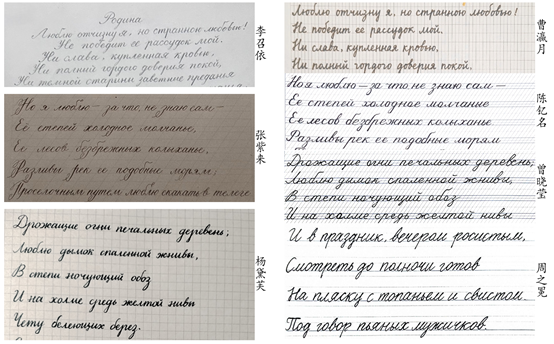 Родина
Люблю отчизну я, но странною любовью!
Не победит ее рассудок мой.
Ни слава, купленная кровью,
Ни полный гордого доверия покой,
Ни темной старины заветные преданья
李召依
Но я люблю — за что, не знаю сам —
Ее степей холодное молчанье,
Ее лесов безбрежных колыханье,
Разливы рек ее подобные морям;
Проселочным путем люблю скакать в телеге
张紫来
Дрожащие огни печальных деревень;
Люблю дымок спаленной жнивы,
В степи ночующий обоз
И на холме средь желтой нивы
Чету белеющих берез.
杨黛芙
Люблю отчизну я, но странною любовью!
Не победит ее рассудок мой.
Ни слава, купленная кровью,
Ни полный гордого доверия покой,
曹瀛月
Но я люблю — за что, не знаю сам —
Ее степей холодное молчание
Ее лесов безбрежных колыхание
Разливы рек ее подобные морям
陈钇名
Дрожащие огни печальных деревень;
Люблю дымок спаленной жнивы,
В степи ночующий обоз
И на холме средь желтой нивы
曾晓莹
И в праздник, вечером росистым,
Смотреть до полночи готов
На пляску с топаньем и свистом
Под говор пьяных мужичков.
周之冕